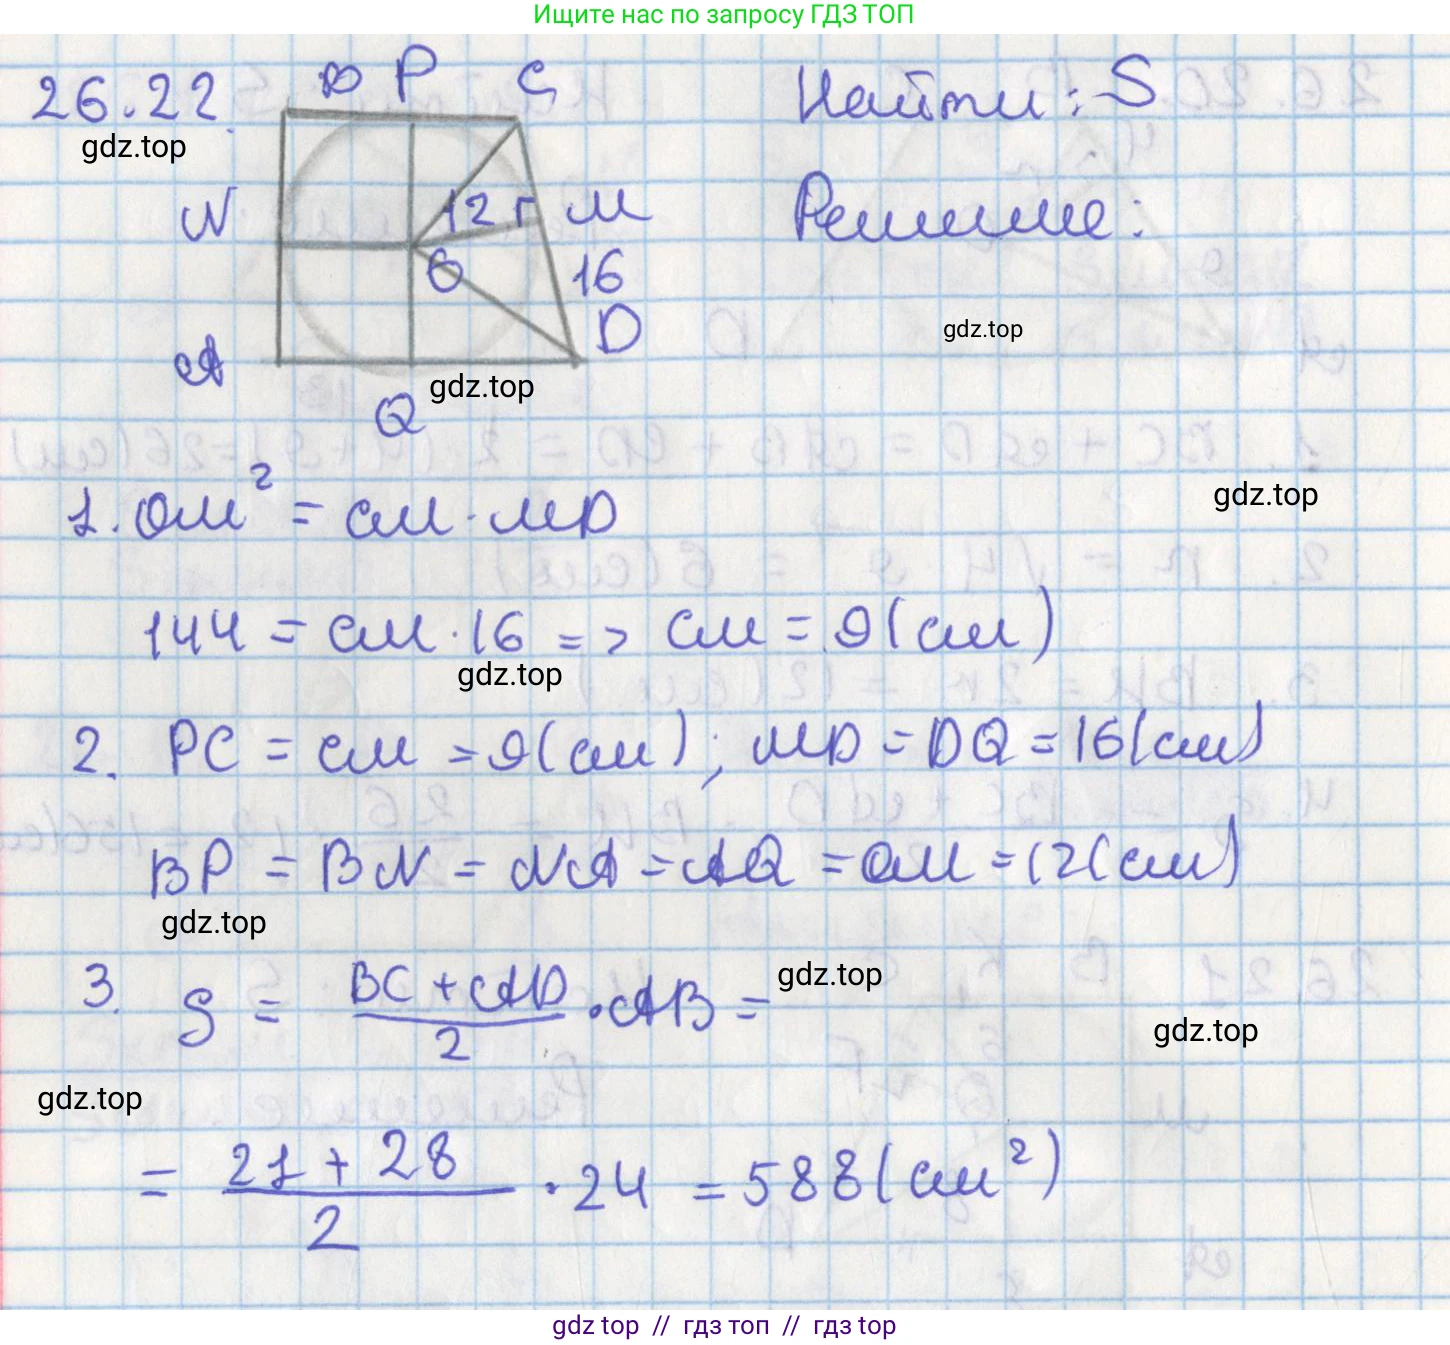 Ищите нас по запросу ГДЗ ТОП
26.22.
gdz.top
B P C
N
12
M
O
16
A
D
Q
gdz.top
Найти: S
Решение:
gdz.top
1. OM² = CM · MD
gdz.top
144 = CM · 16 => CM = 9 (см)
gdz.top
2. PC = CM = 9 (см); MD = DQ = 16 (см)
BP = BN = NA = AQ = OM = 12 (см)
gdz.top
3. S = (BC + AD)/2 · AB =
gdz.top
gdz.top
gdz.top
= (21 + 28)/2 · 24 = 588 (см²)
gdz top // гдз топ // гдз top